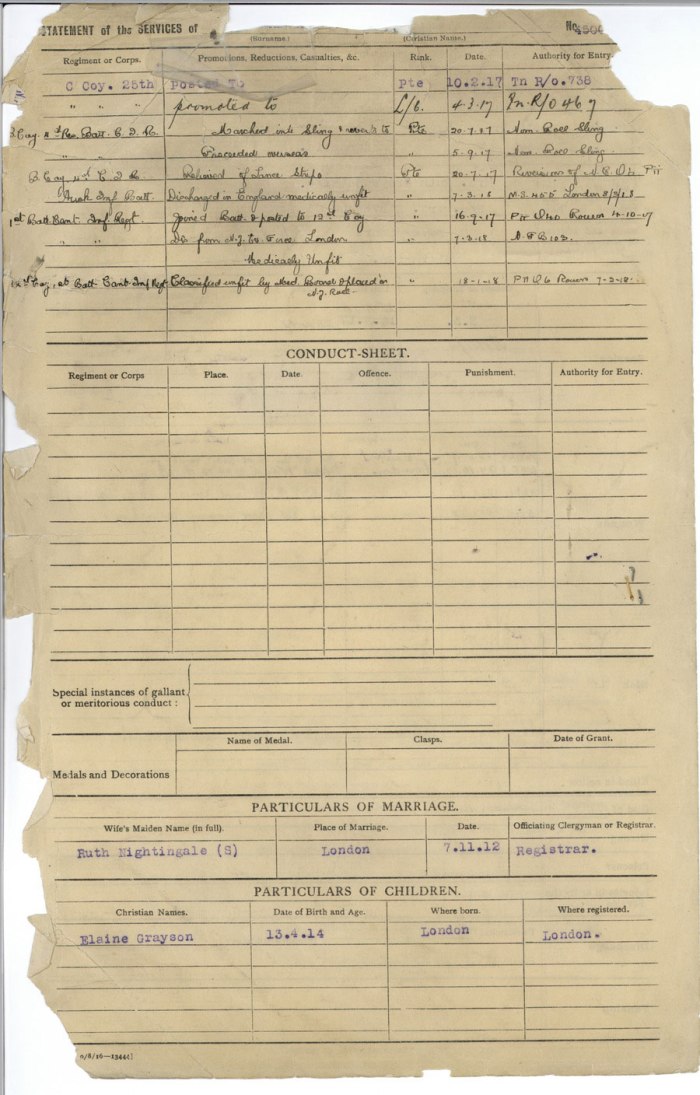 STATEMENT of the SERVICES of
No.
(Surname.) (Christian Name.)
Regiment or Corps. Promotions, Reductions, Casualties, &c. Rank. Date. Authority for Entry.
C Coy. 25th posted To Pte 10.2.17 Tn R/o.738
" " " promoted to L/C. 4.3.17 Tn. R/O 467
Marched into Sling & reverts to Pte 20.7.17 Nom. Roll Sling.
" " Proceeded overseas " 5.9.17 Nom. Roll Sling.
B Coy 4th C.I.R. Relinquished of Lance Stripe Pte 20.7.17
Inf. Batt. Discharged in England medically unfit " 7.3.18 London
1st Batt Cant. Inf Regt. Joined Batt & posted to 12th Coy " 16.9.17 Rouen 4-10-17
" " Dis from N.Z. Ex Force. London " 7.3.18
Medically Unfit
1st Batt Cant Inf Regt Classified unfit by Med. Board & placed on " 18-1-18 Rouen 7-2-18
N.Z. Roll
CONDUCT-SHEET.
Regiment or Corps Place. Date. Offence. Punishment. Authority for Entry.
Special instances of gallant
or meritorious conduct :
Name of Medal. Clasps. Date of Grant.
Medals and Decorations
PARTICULARS OF MARRIAGE.
Wife's Maiden Name (in full). Place of Marriage. Date. Officiating Clergyman or Registrar.
Ruth Nightingale (S) London 7.11.12 Registrar.
PARTICULARS OF CHILDREN.
Christian Names. Date of Birth and Age. Where born. Where registered.
Elaine Grayson 13.4.14 London London.
0/8/16—13444]